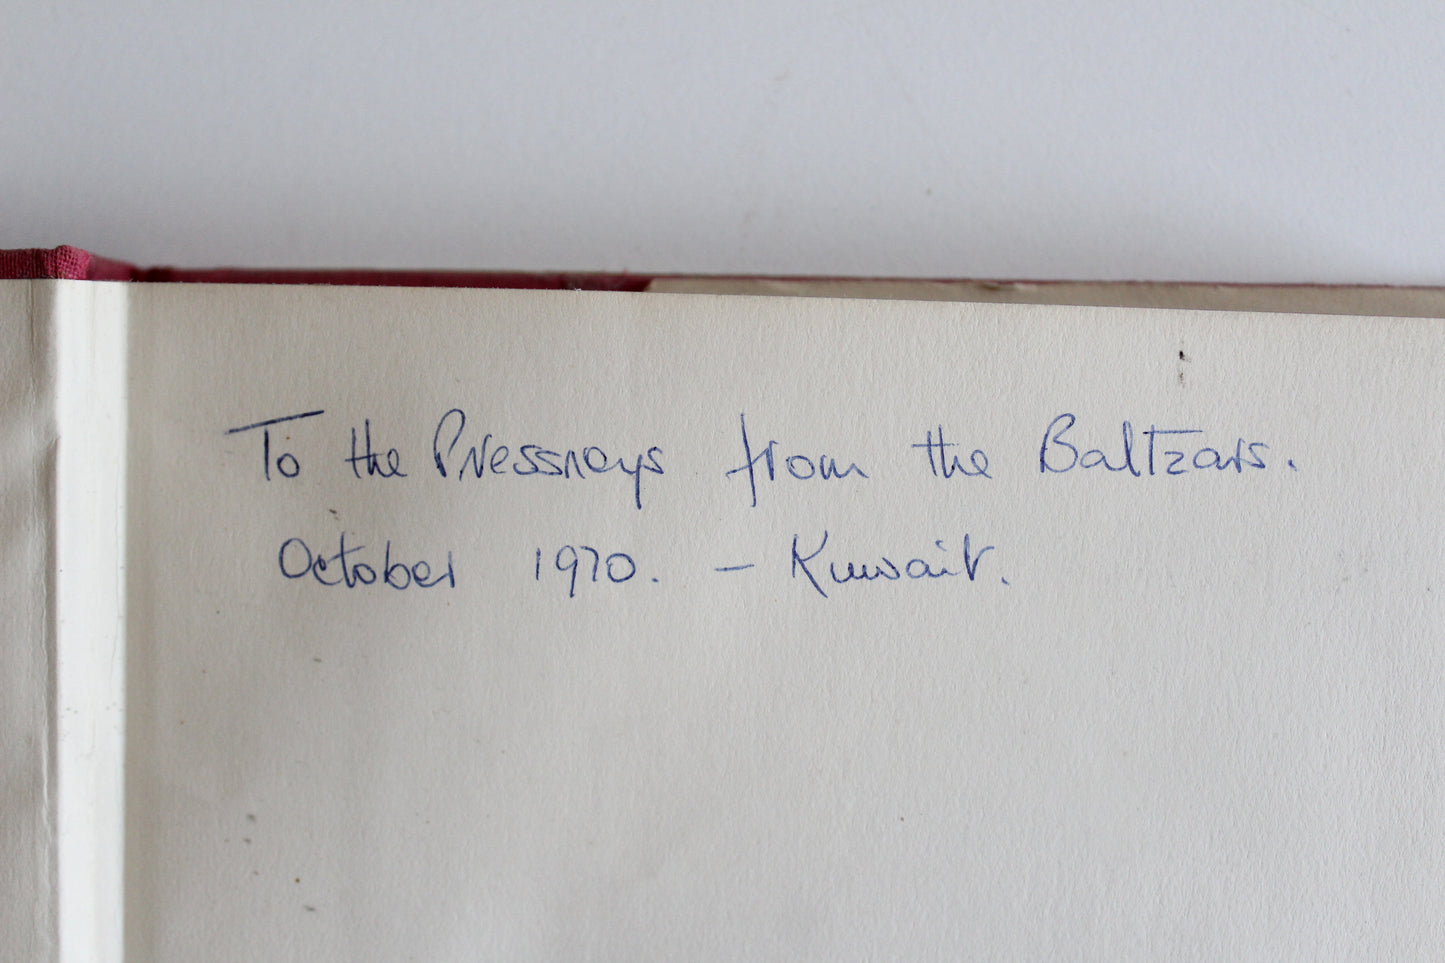 To the Pressneys from the Baltzars.
October 1970. - Kuwait.